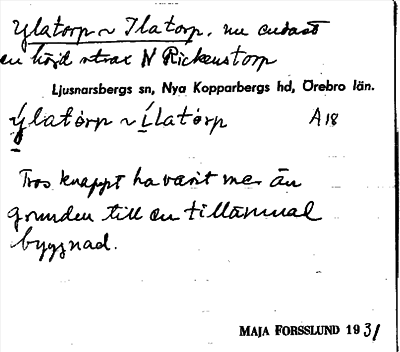 Ylatorp ~ Ilatorp, nu endast
en höjd strax N Rickenstorp
Ljusnarsbergs sn, Nya Kopparbergs hd, Örebro län.
Ýlatòrp ~ Ílatòrp A18
Tros knappt ha varit mer än
grunden till en tillämnad
byggnad.
MAJA FORSSLUND 1931